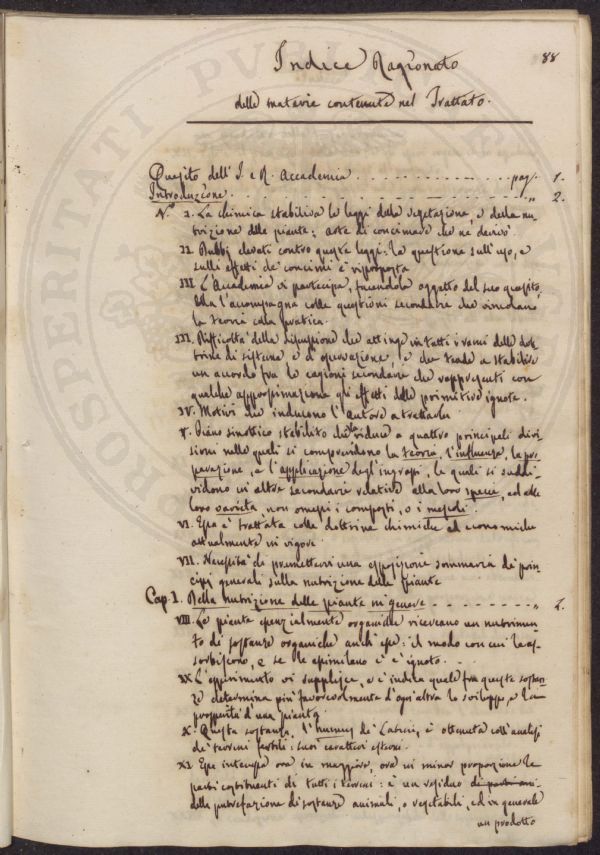 88
Indice Ragionato
delle materie contenute nel Trattato.
Quesito dell'I. e R. Accademia . . . . . . . . . . . pag. 1.
Introduzione . . . . . . . . . . . . . . . . . . . . " 2.
N.º I. La chimica stabiliva le leggi della vegetazione, e della nu-
trizione delle piante; arte di concimare che ne derivò.
II. Dubbj elevati contro queste leggi: la questione sull'uso, e
sulli effetti de' concimi è riproposta
III L'Accademia vi partecipa, facendola oggetto del suo quesito,
Ella l'accompagna colle questioni secondarie che vincolano
la teoria colla pratica.
III. Difficoltà della discussione che attinge in tutti i rami delle dot-
trine di sistema e di operazione, e che tende a stabilire
un accordo fra le cagioni secondarie che rappresenti con
qualche approssimazione gli effetti delle primitive ignote.
IV. Motivi che inducono l'Autore a trattarla
V. Piano sinottico stabilito che riduce a quattro principali divi-
sioni nelle quali si comprendono la teoria, l'influenza, la pre-
parazione, e l'applicazione degl'ingrassi, le quali si suddi-
vidono in altre secondarie relative alla loro specie, ed alle
loro varietà, non omessi i composti, o i mescoli.
VI. Essa è trattata colle dottrine chimiche ed economiche
attualmente in vigore
VII. Necessità di premettervi una esposizione sommaria de' prin-
cipj generali sulla nutrizione delle piante
Cap. I. Della nutrizione delle piante in genere . . . . . . . . " 2.
VIII. Le piante essenzialmente organiche ricevono un nutrimen-
to di sostanze organiche anch'esse: il modo con cui le as-
sorbiscono, e se le assimilano ci è ignoto.
IX L'esperimento vi supplisce, e c'indica quale fra queste sostan-
ze determina più favorevolmente d'ogni altra lo sviluppo, e la
prosperità d'una pianta
X. Questa sostanza, l'humus de' Latini, è ottenuta coll'analisi
de' terreni fertili: suoi caratteri esterni.
XI Essa interessa ora in maggiore, ora in minor proporzione le
parti costituenti di tutti i terreni: è un residuo
della putrefazione di sostanze animali, o vegetabili, ed in generale
un prodotto